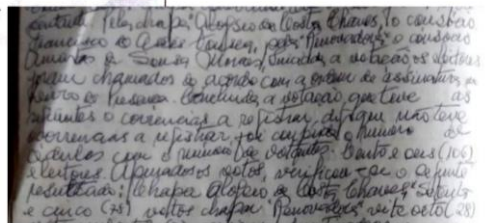 contente. Pela chapa "Aloysio da Costa Chaves", o consócio
Francisco de Assis Fonseca, pela "Renovadora" o consócio
de Souza Moraes. Iniciada a votação os eleitores
foram chamados de acordo com a ordem de assinatura no
de Presença. Concluida a votação que teve as
o correncias a registrar, digo que não teve
ocorrencias a registrar foi o numero de
cedulas com o numero de votantes. Cento e seis (106)
eleitores. Apurados os votos, verificou-se o seguinte
resultado: Chapa Aloysio da Costa Chaves, setenta
e cinco (75) votos chapa "Renovadora" vinte oito (28)